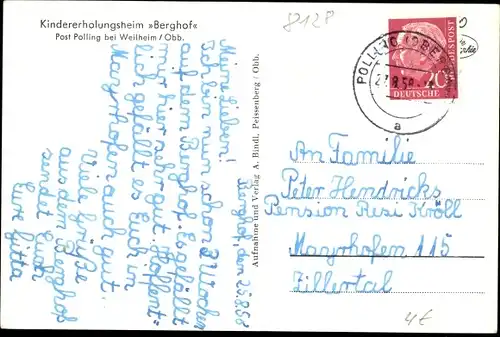 Kindererholungsheim »Berghof«
Post Polling bei Weilheim / Obb.
8128
Berghof, den 25.8.58
Meine Lieben!
Ich bin nun schon 3 Wochen
auf dem Berghof. Es gefällt
mir hier sehr gut. Hoffent-
lich gefällt es Euch in
Mayrhofen auch gut.
Viele Grüße
aus dem Berghof
sendet Euch
Eure Gitta
Aufnahme und Verlag A. Bindl, Peissenberg / Obb.
POLLING (OBB
a
DEUTSCHE
BUNDESPOST
20
An Familie
Peter Hendricks
Pension Resi Kröll
Mayrhofen 115
Zillertal
4€